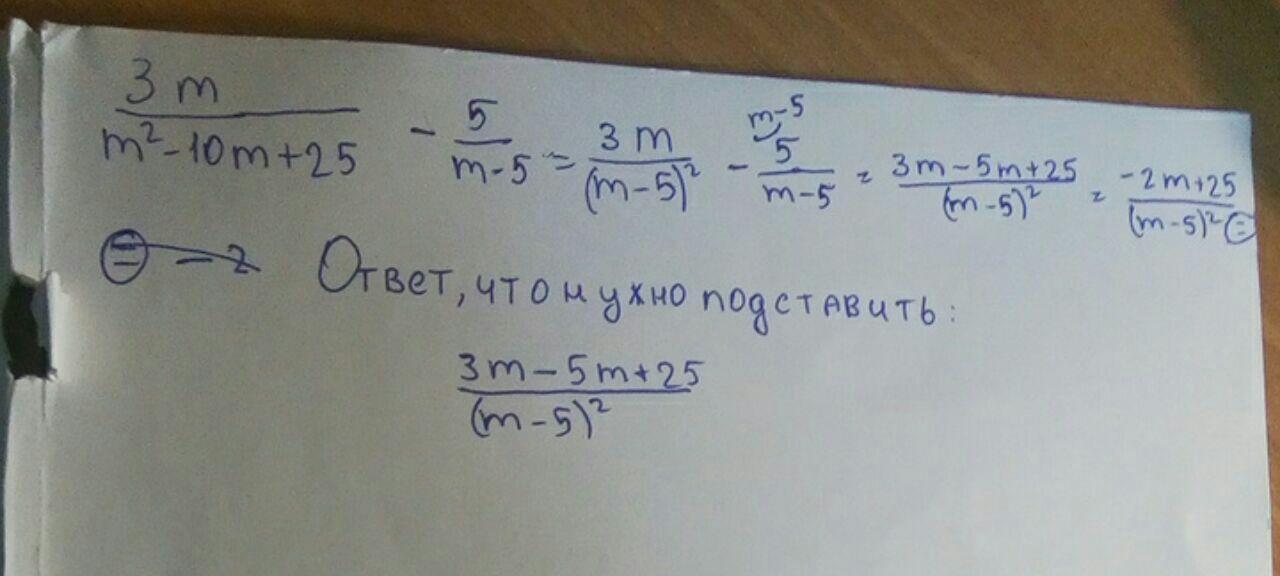 3m/(m²-10m+25) - 5/(m-5) = 3m/(m-5)² - 5/(m-5) (m-5) = (3m-5m+25)/(m-5)² = (-2m+25)/(m-5)² ⊜
⊜ - 2 Ответ, что нужно подставить:
(3m-5m+25)/(m-5)²